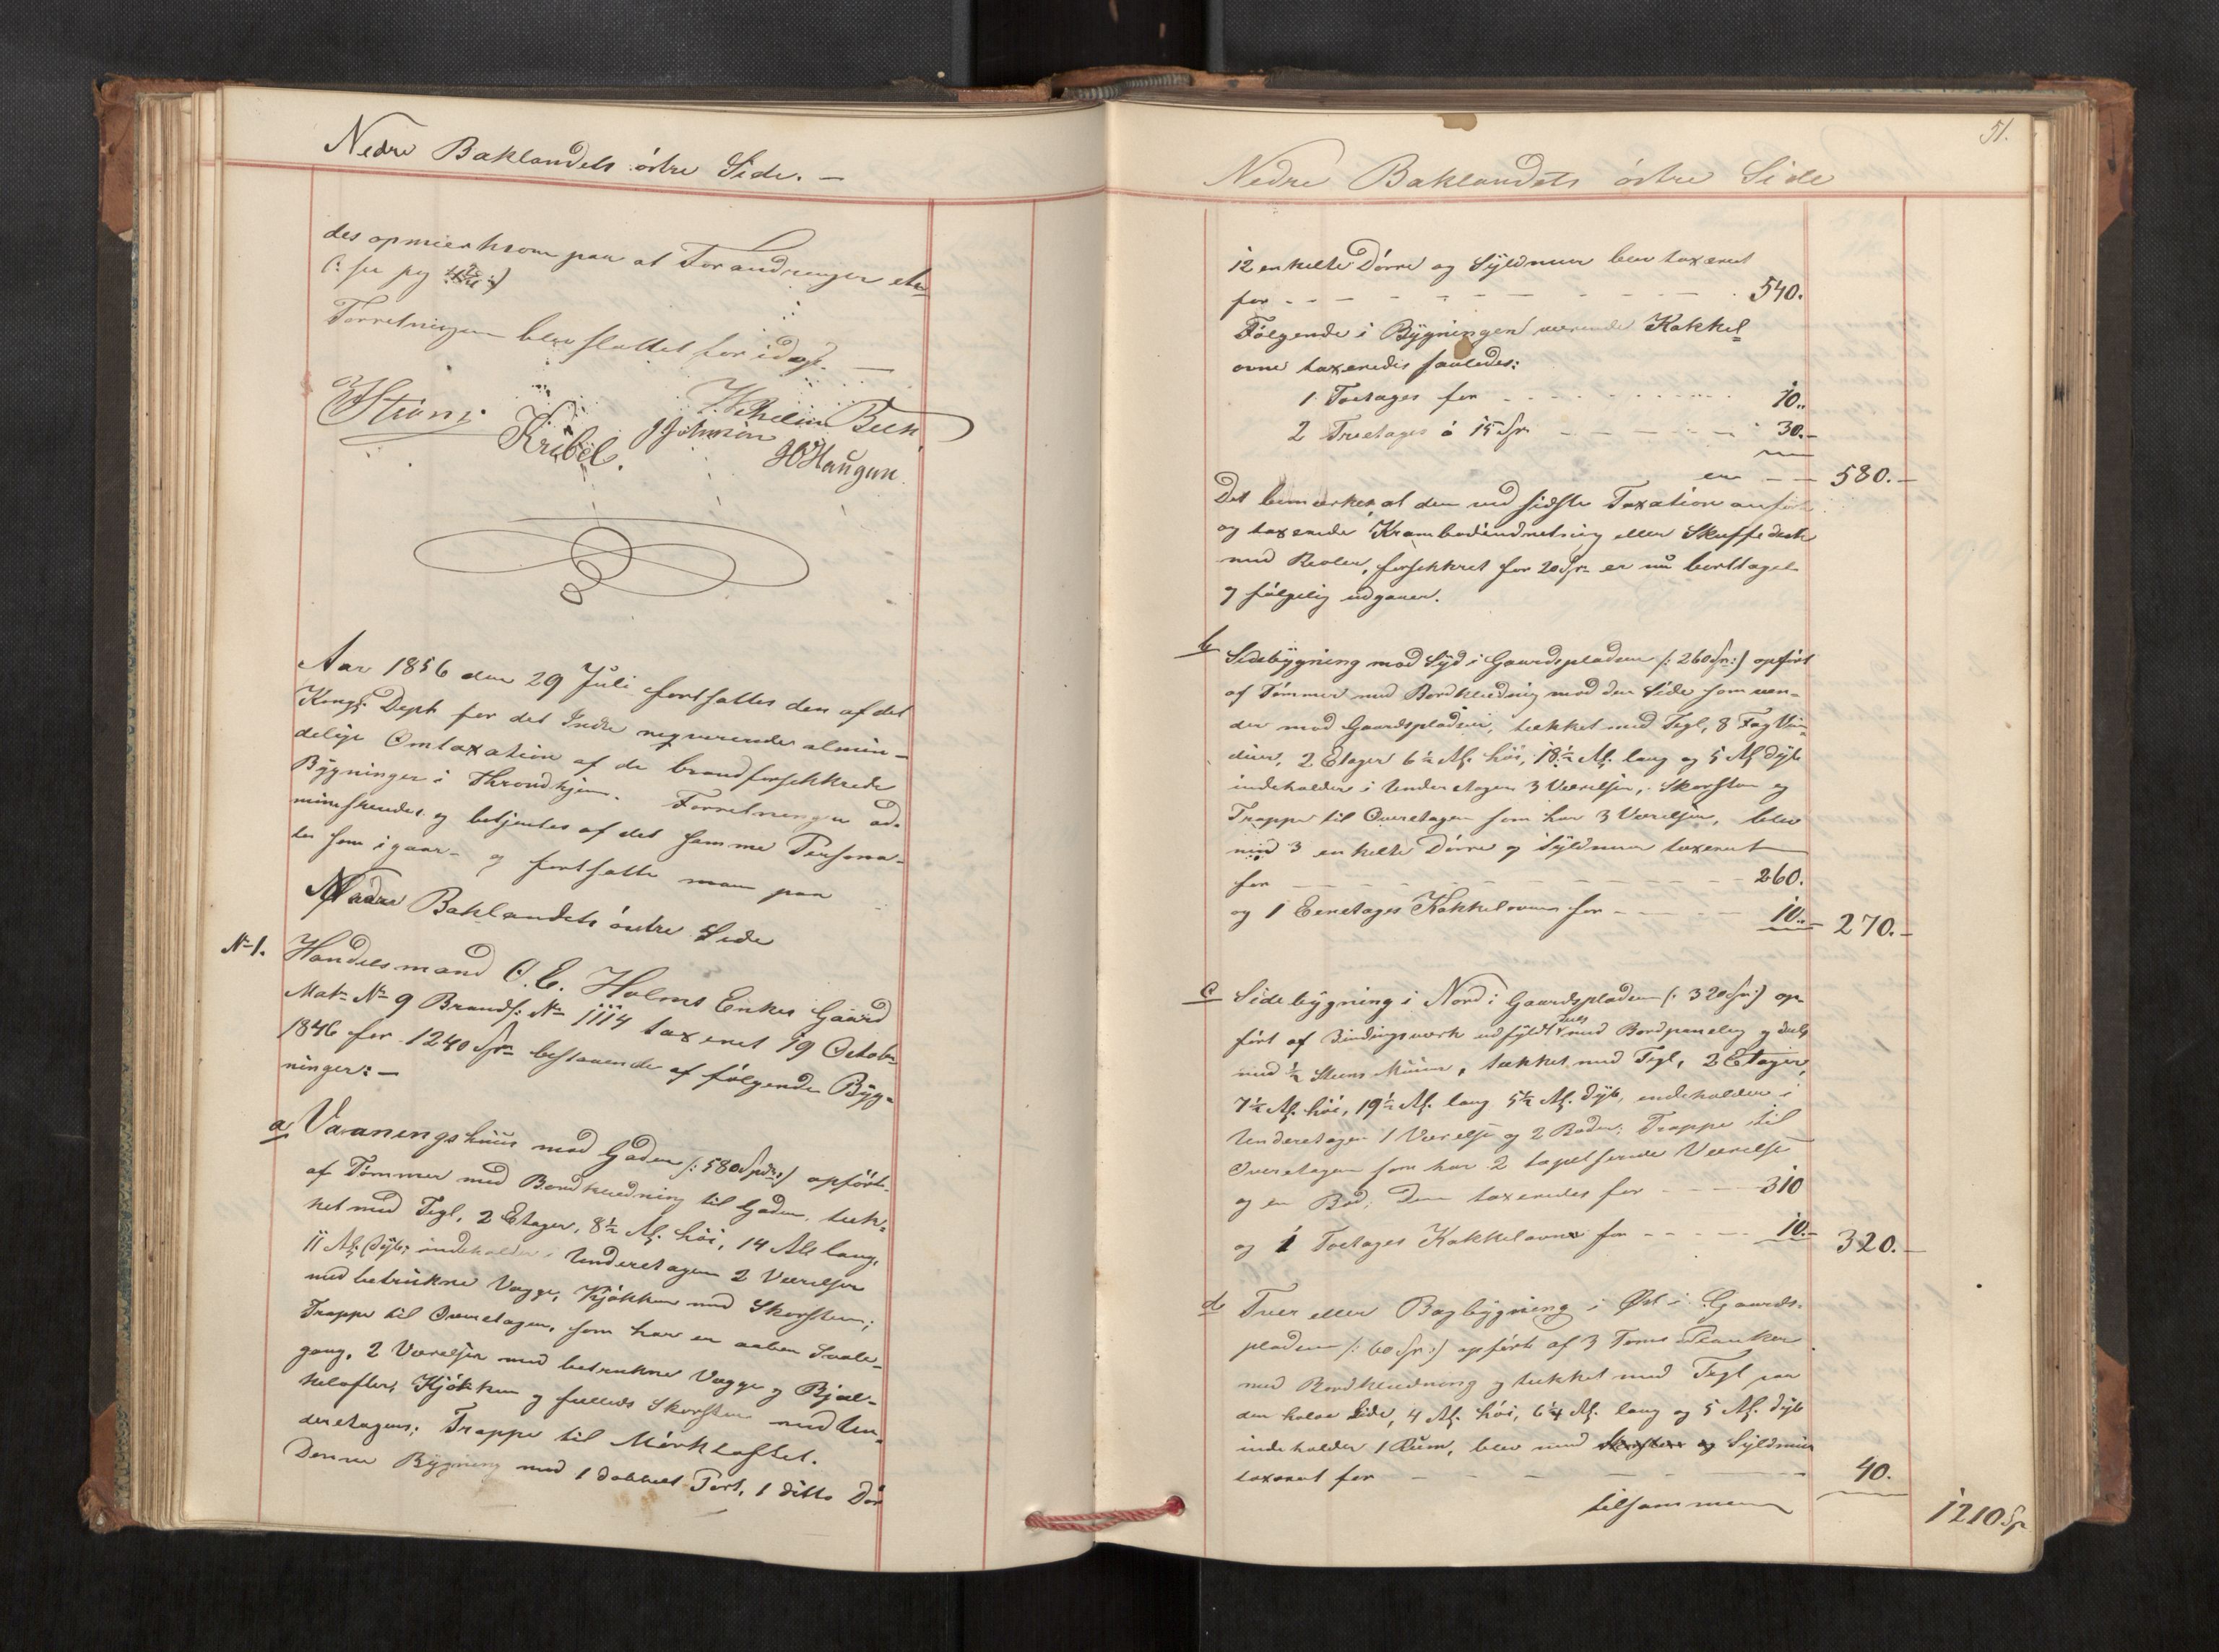 Nedre Baklandets östre Side. —
des opmærksom paa at Forandringer etc
(: se pag
Forretningen blev sluttet for idag. —
Strøm
Kribel.
J Johnsen
Vilhelm Beck
HO Haugan
Aar 1856 den 29 Juli fortsattes den af det
Kongl. Dept. for det Indre reqvirerede almin-
delige Omtaxation af de brandforsikkrede
Bygninger i Throndhjem. Forretningen ad-
ministreredes og betjentes af det samme Persona-
le som igaar - og fortsatte man paa
Nedre Baklandets östre Side
No 1. Handelsmand O. E. Holms Enkes Gaard
Matr. No 9 Brandf: No 1114 taxeret 19 Octobr
1846 for 1240 Spr. bestaaende af følgende Byg-
ninger: —
a, Vaaningshuus mod Gaden /: 580 Spdr:/ opført
af Tømmer med Bordklædning til Gaden, tæk-
ket med Tegl, 2 Etager, 8½ Al. höi, 14 Al. lang,
11 Al. dyb; indeholder i Underetagen 2 Værelser
med betrukne Vægge, Kjøkken med Skorsten;
Trappe til Overetagen, som har en aaben Svale-
gang, 2 Værelser med betrukne Vægge og Bjæl-
kelofter, Kjøkken og fælleds Skorsten med Un-
deretagen; Trappe til Mørkloftet.
Denne Bygning med 1 dobbelt Port, 1 ditto Dør
51.
Nedre Baklandets östre Side
12 enkelte Dørre og Syldmuur blev taxeret
for - - - - 540.
Følgende i Bygningen værende Kakkel-
ovne taxeredes saaledes:
1 Toetages for - - - - 10.
2 Treetages á 15 Spr - - - - 30. -
er - - 580. -
Det bemærkes, at den ved sidste Taxation anførte
og taxerede Krambodindretning eller Skuffedisk
med Reoler, forsikkret for 20 Spr. er nu borttaget
og følgelig udgaaer.
b Sidebygning mod Syd i Gaardspladsen /: 260 Spr:/ opført
af Tømmer med Bordklædning mod den Side som ven-
der mod Gaardspladsen, tækket med Tegl, 8 Fag Vin-
duer, 2 Etager 6½ Al. höi, 18½ Al. lang og 5 Al. dyb
indeholder i Underetagen 3 Værelser, Skorsten og
Trappe til Overetagen som har 3 Værelser, blev
med 3 enkelte Dørre og Syldmuur taxeret
for - - - - 260.
og 1 Eenetages Kakkelovn for - - - 10. - 270. -
c Sidebygning i Nord i Gaardspladsen /: 320 Spr:/ op-
ført af Bindingsværk udfyldt deels med Bordpaneling og deels
med ½ Steens Muur, tækket med Tegl, 2 Etager,
7½ Al. höi, 19½ Al. lang 5½ Al. dyb, indeholder i
Underetagen 1 Værelse og 2 Boder; Trappe til
Overetagen som har 2 tapetserede Værelser
og en Bod; den taxeredes for - - - 310
og 1 Toetages Kakkelovn for - - - - 10. - 320. -
d Tvær eller Bagbygning i Øst i Gaards-
pladsen /: 60 Spr:/ opført af 3 Toms Planker
med Bordklædning og tækket med Tegl paa
den halve Side, 4 Al. höi, 6¼ Al. lang og 5 Al. dyb
indeholder 1 Rum, blev med Skorsten og Syldmuur
taxeret for - - - - 40.
tilsammen 1210 Sp